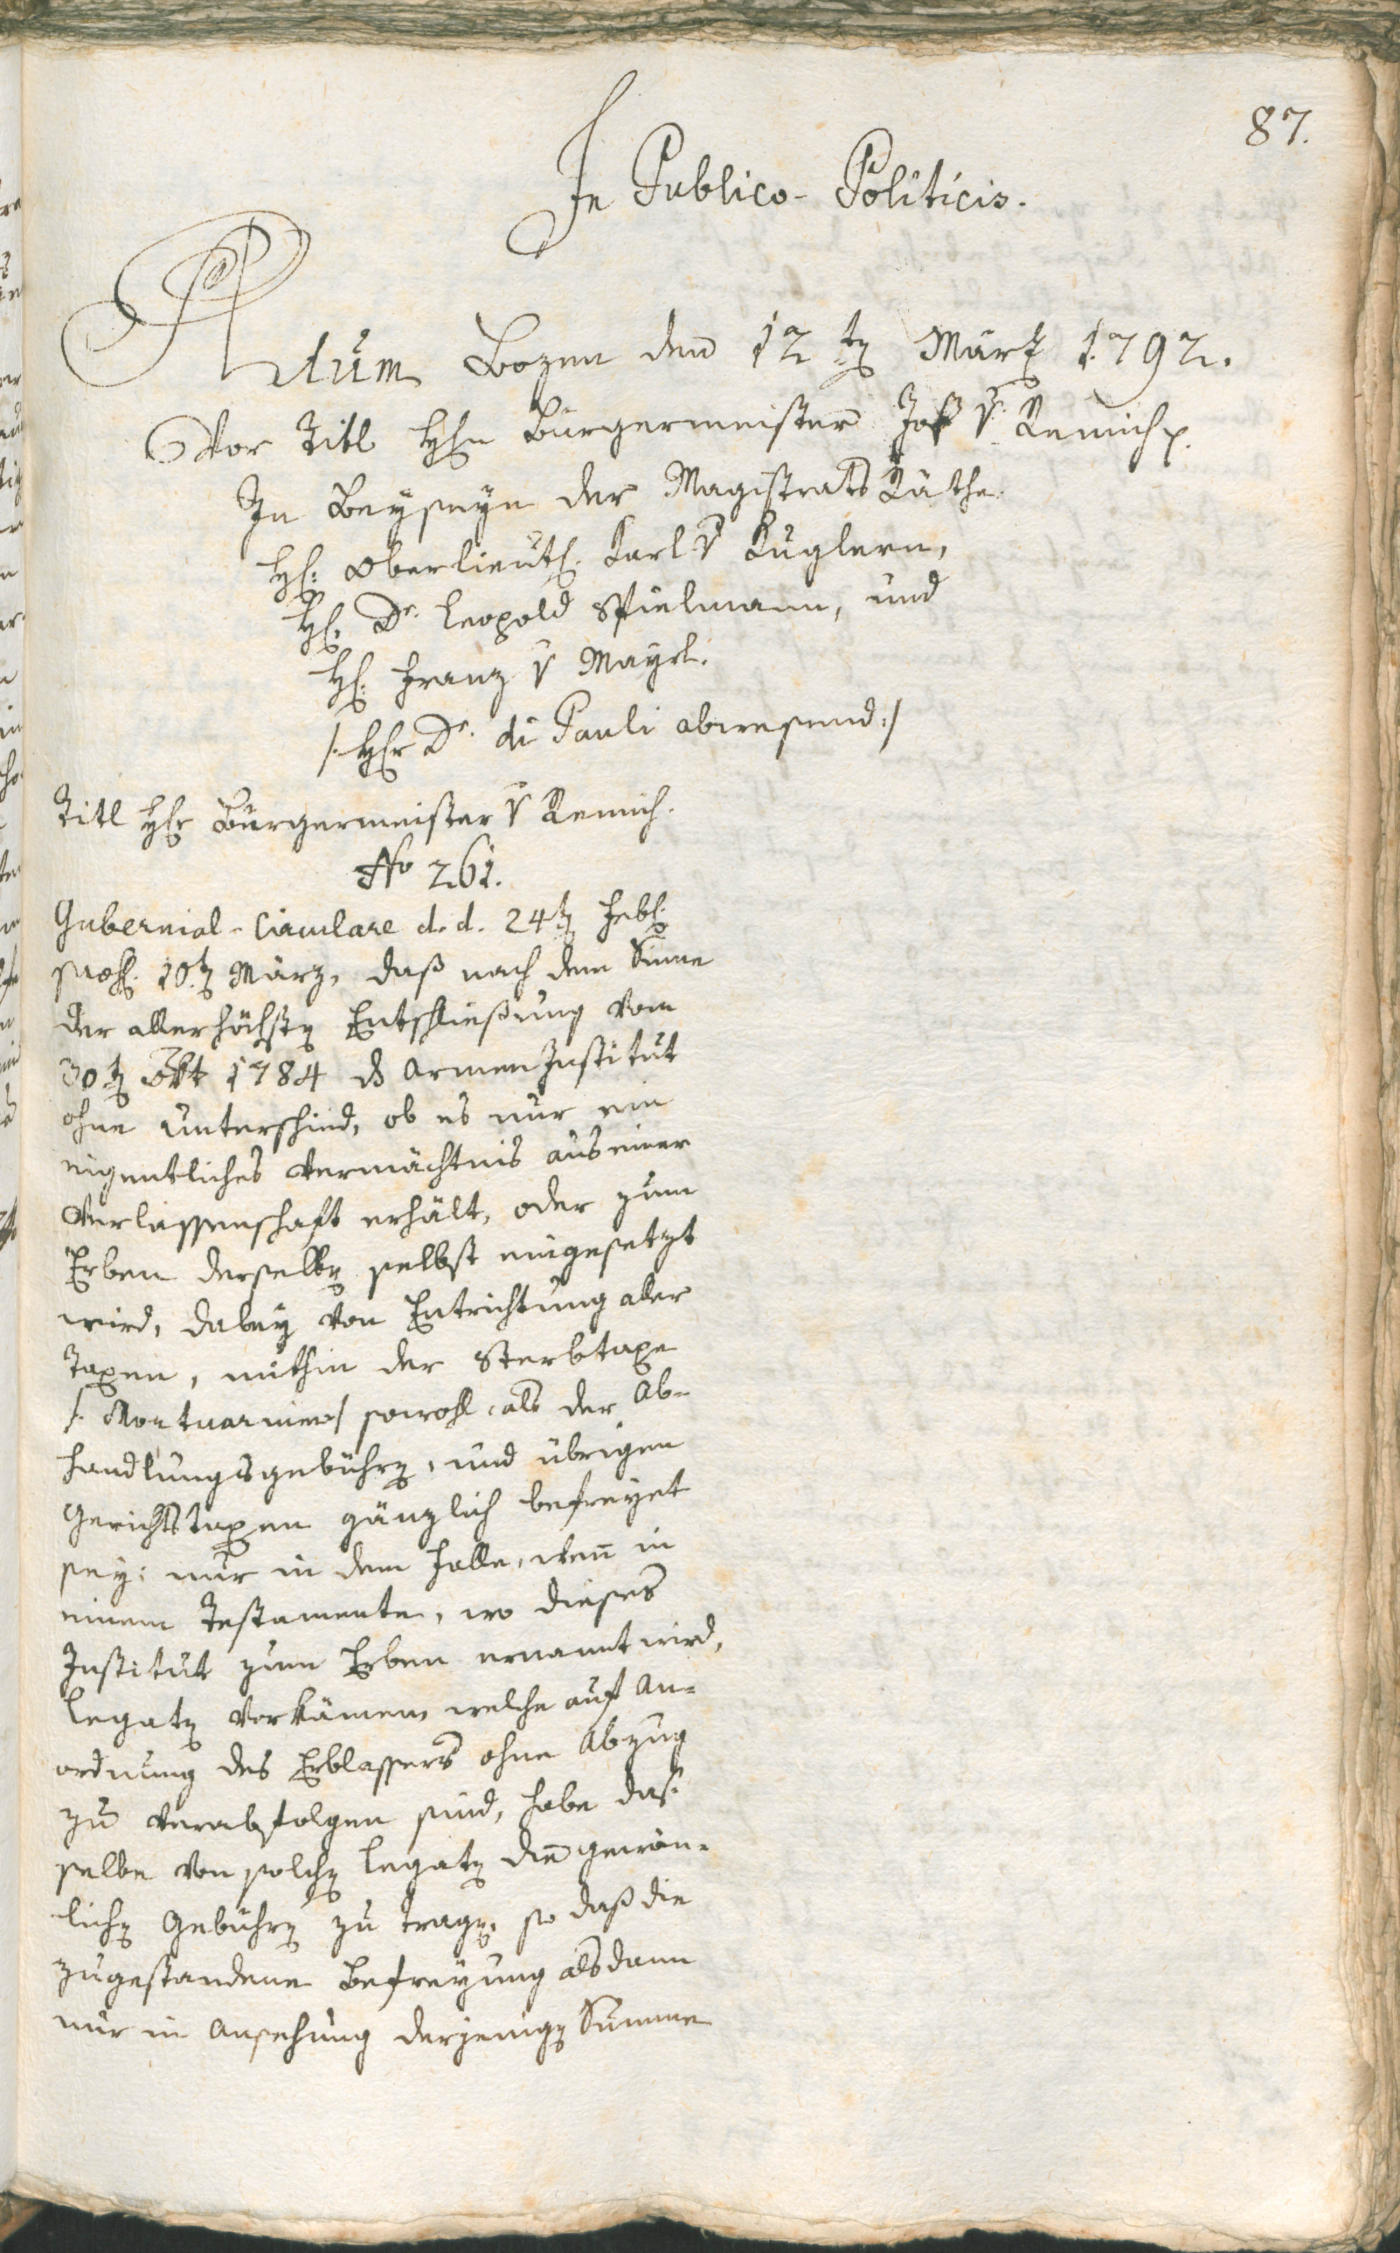 87.
In Publico-Politicis.
Actum Bozen den 12 tn März 1792.
Vor Titl Hhn Bürgermeister Jos v. Remich p.
In Beyseyn der Magistrats Räthe
Hl: Oberlieut. Karl v Kuglern,
Hl. Dr. Leopold Spielmann, und
Hl. Franz v Mayrl.
/: Hhr Dr. di Pauli abwesend :/
Titl Hhr Bürgermeister v Remich.
No 261.
Gubernial-Circulare d. d. 24tn Febl.
praes. 10.tn März, daß nach dem Sinne
der allerhöchstn Entschließung vom
30tn Okt 1784 ds Armen Institut
ohne Unterschied, ob es nur ein
eigentliches Vermächtnis aus einer
Verlassenschaft erhält, oder zum
Erben derselbn selbst eingesetzt
wird, dabey von Entrichtung aller
Taxen, mithin der Sterbtaxe
/: Mortuarium :/ sowohl, als der Ab-
handlungsgebührn, und übrigen
Gerichtstaxen gänzlich befreyet
sey: nur in dem Falle, wen̄ in
einem Testamente, wo dieses
Institut zum Erben ernannt wird,
Legatn vorkämen, welche auf An-
ordnung des Erblassers ohne Abzug
zu verabfolgen sind, habe das-
selbe von solchn Legatn die gewön-
lichn Gebührn zu tragn, so daß die
zugestandene Befreyung alsdann
nur in Ansehung derjenign Summe